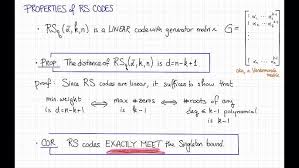 PROPERTIES of RS CODES
• RS_q(α⃗,k,n) is a LINEAR code with generator matrix G =
• PROP. The distance of RS_q(α⃗,k,n) is d=n-k+1.
proof: Since RS codes are linear, it suffices to show that
min. weight is d ⟺ max # zeros is k-1 ⟺ # roots of any deg ≤ k-1 polynomial is k-1
• COR. RS codes EXACTLY MEET the Singleton bound.